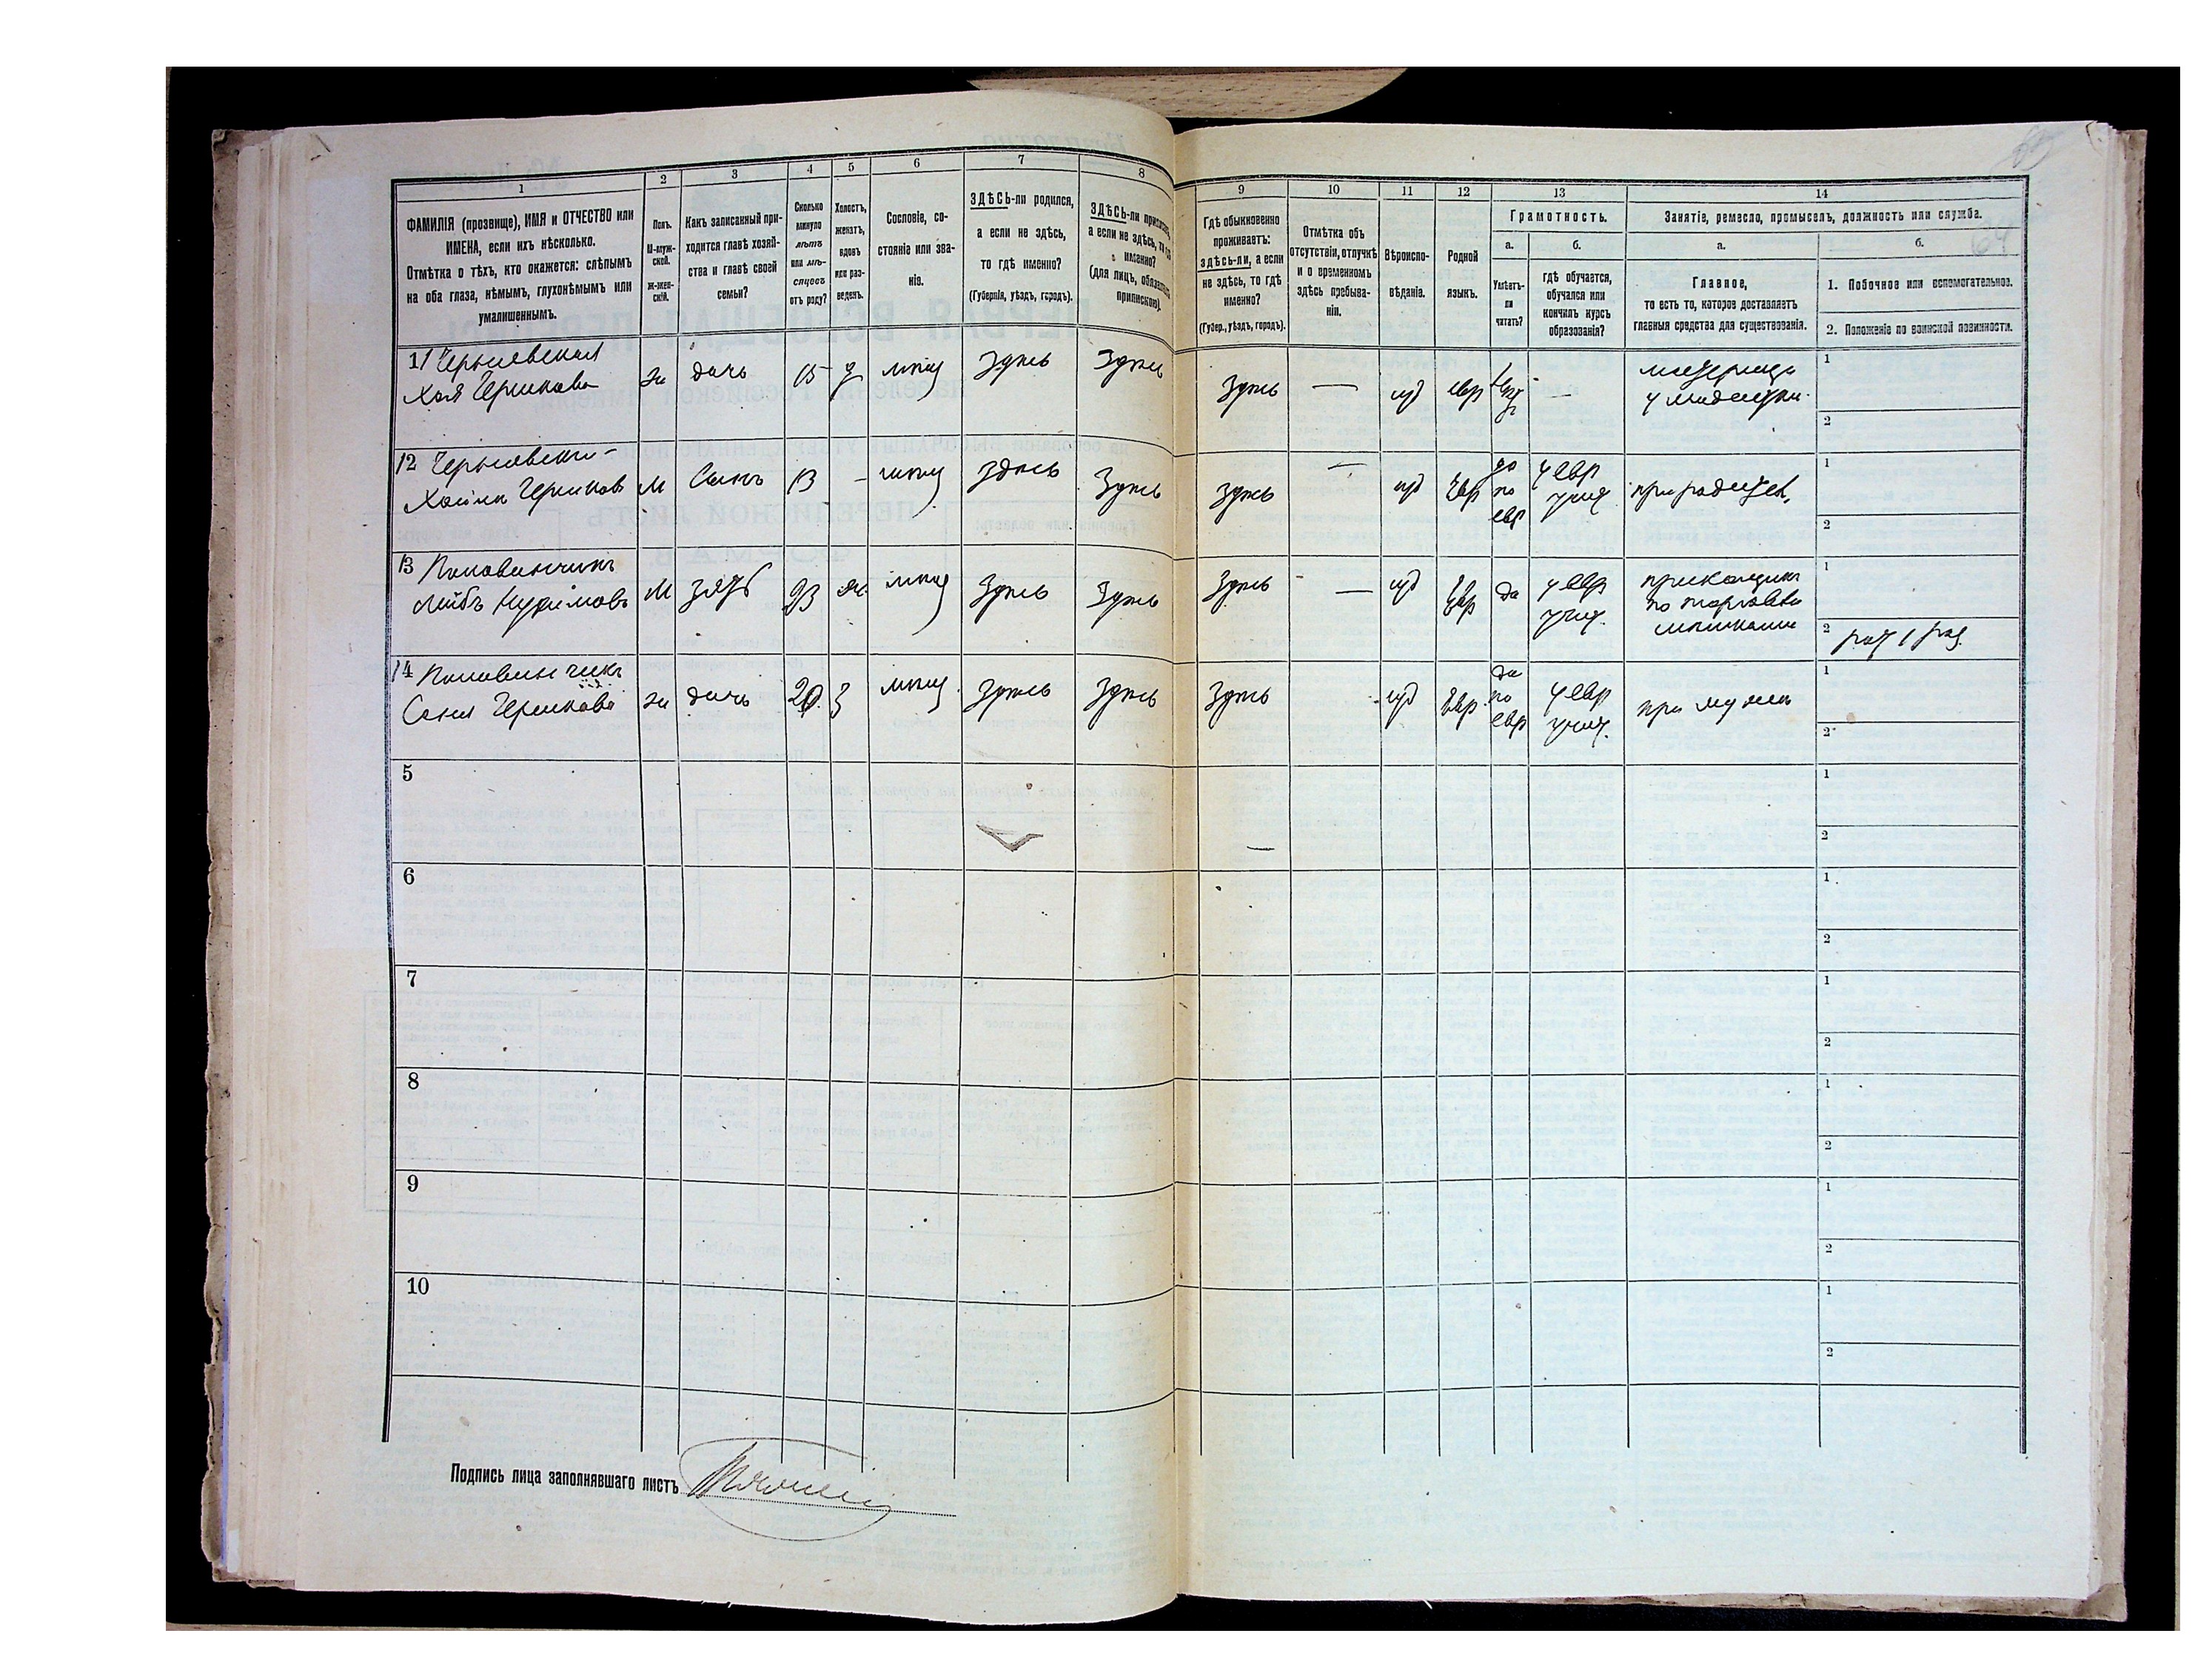 1
ФАМИЛІЯ (прозвище), ИМЯ и ОТЧЕСТВО или
ИМЕНА, если ихъ нѣсколько.
Отмѣтка о тѣхъ, кто окажется: слѣпымъ
на оба глаза, нѣмымъ, глухонѣмымъ или
умалишеннымъ.
2
Полъ.
М-муж-
ской.
Ж-жен-
скій.
3
Какъ записанный при-
ходится главѣ хозяй-
ства и главѣ своей
семьи?
4
Сколько
минуло
лѣтъ
или мѣ-
сяцевъ
отъ роду?
5
Холостъ,
женатъ,
вдовъ
или раз-
веденъ.
6
Сословіе, со-
стояніе или зва-
ніе.
7
ЗДѢСЬ-ли родился,
а если не здѣсь,
то гдѣ именно?
(Губернія, уѣздъ, городъ).
8
ЗДѢСЬ-ли приписанъ,
а если не здѣсь, то гдѣ
именно?
(для лицъ, обязанныхъ
припискою).
9
Гдѣ обыкновенно
проживаетъ:
здѣсь-ли, а если
не здѣсь, то гдѣ
именно?
(Губер., уѣздъ, городъ).
10
Отмѣтка объ
отсутствіи, отлучкѣ
и о временномъ
здѣсь пребыва-
ніи.
11
Вѣроиспо-
вѣданіе.
12
Родной
языкъ.
13
Грамотность.
а.
Умѣетъ-
ли
читать?
б.
гдѣ обучается,
обучался или
кончилъ курсъ
образованія?
14
Занятіе, ремесло, промыселъ, должность или служба.
а.
Главное,
то есть то, которое доставляетъ
главныя средства для существованія.
б.
1. Побочное или вспомогательное.
2. Положеніе по воинской повинности.
64
11 Чернявская
Хая Гершкова
дочь
15
мѣщ
здѣсь
здѣсь
здѣсь
—
іуд
евр
—
1
2
12 Чернявски
Гершковъ
М
Сынъ
13
-
мѣщ
здѣсь
здѣсь
здѣсь
—
іуд
евр
да
по
евр
у евр
учит
1
2
13 Половинчикъ
Лейбъ
М
зять
23
же.
мѣщ
здѣсь
здѣсь
здѣсь
—
іуд
евр
да
у евр
учит.
прикащикъ
по торговлѣ
мѣшками
1
2 рат 1 раз
14 Половинчикъ
Соня Гершкова
дочь
20.
з
мѣщ.
здѣсь
здѣсь
здѣсь
іуд
евр.
да
по
евр
у евр
учит.
при мужѣ
1
2
5
1
2
6
1
2
7
1
2
8
1
2
9
1
2
10
1
2
Подпись лица заполнявшаго листъ